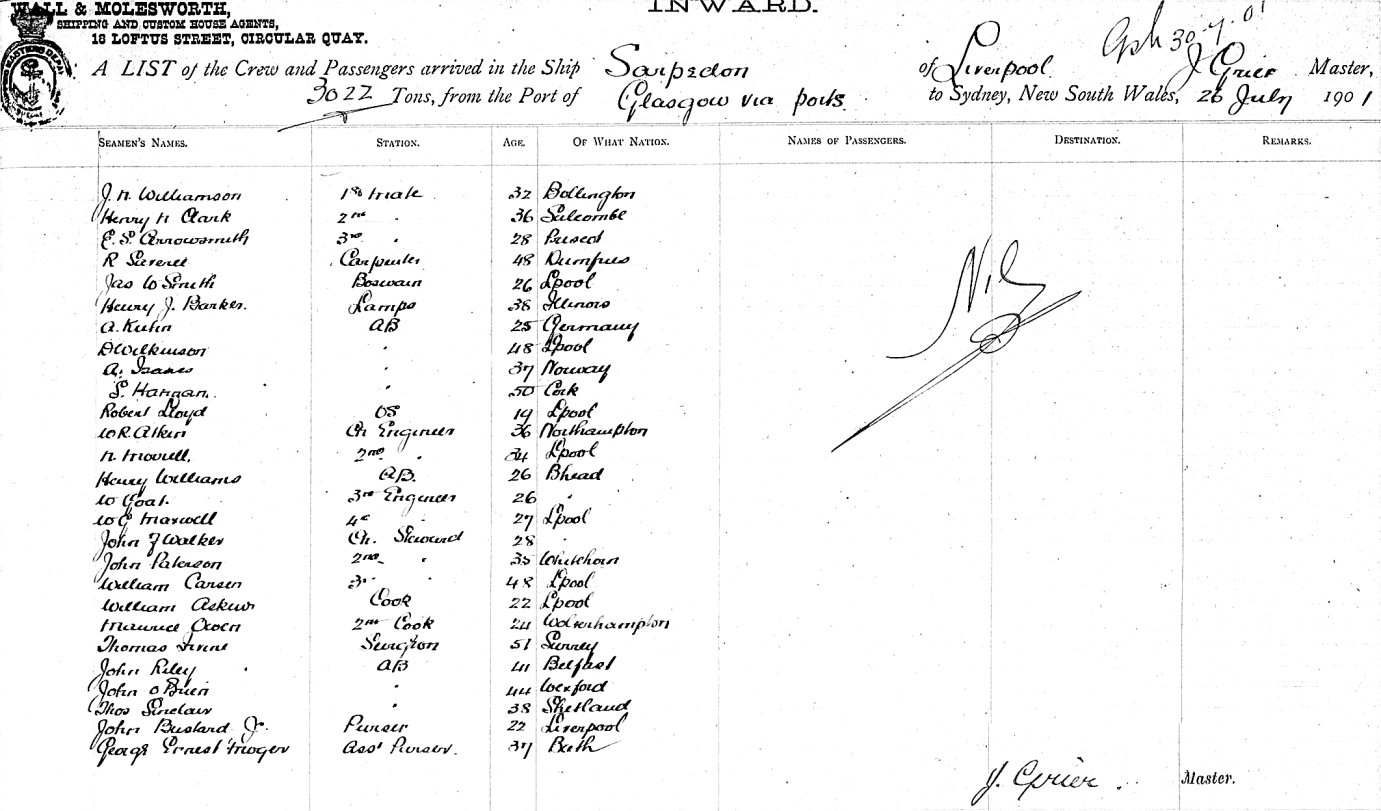 WALL & MOLESWORTH,
SHIPPING AND CUSTOM HOUSE AGENTS,
18 LOFTUS STREET, CIRCULAR QUAY.
INWARD.
30.7.01
A LIST of the Crew and Passengers arrived in the Ship Sarpedon of Liverpool J Grier Master,
3022 Tons, from the Port of Glasgow via ports to Sydney, New South Wales, 26 July 1901
SEAMEN'S NAMES. STATION. AGE. OF WHAT NATION. NAMES OF PASSENGERS. DESTINATION. REMARKS.
J. H. Williamson 1st mate 32 Bollington
Henry H Clark 2nd " 36 Salcombe
E. S. Arrowsmith 3rd " 28 Bristol
R Carpenter 48 Dumfries
Jas W Smith Boswain 26 Lpool
Henry J. Barker. Lamps 38 Illinois
A. Kuhn AB 25 Germany
D Wilkinson " 48 Lpool
A. " 37 Norway
S. Hannan. " 50 Cork
Robert Lloyd OS 19 Lpool
W R Atkin Ch Engineer 36 Northampton
H. Morrell. 2nd " 34 Lpool
Henry Williams AB. 26 Bhead
W Goat. 3rd Engineer 26 "
W E Maxwell 4th 27 Lpool
John F Walker Ch. Steward 28 "
John Paterson 2nd " 35 Whithorn
William Carsen 3rd " 48 Lpool
William Askew Cook 22 Lpool
Maurice Owen 2nd Cook 24 Wolverhampton
Thomas Irvine Surgeon 51 Surrey
John Riley AB 41 Belfast
John O Brien " 44 Wexford
Thos Sinclair " 38 Shetland
John Bustard Jr. Purser 22 Liverpool
George Ernest Asst Purser. 37 Bath
Nil
J. Grier. Master.